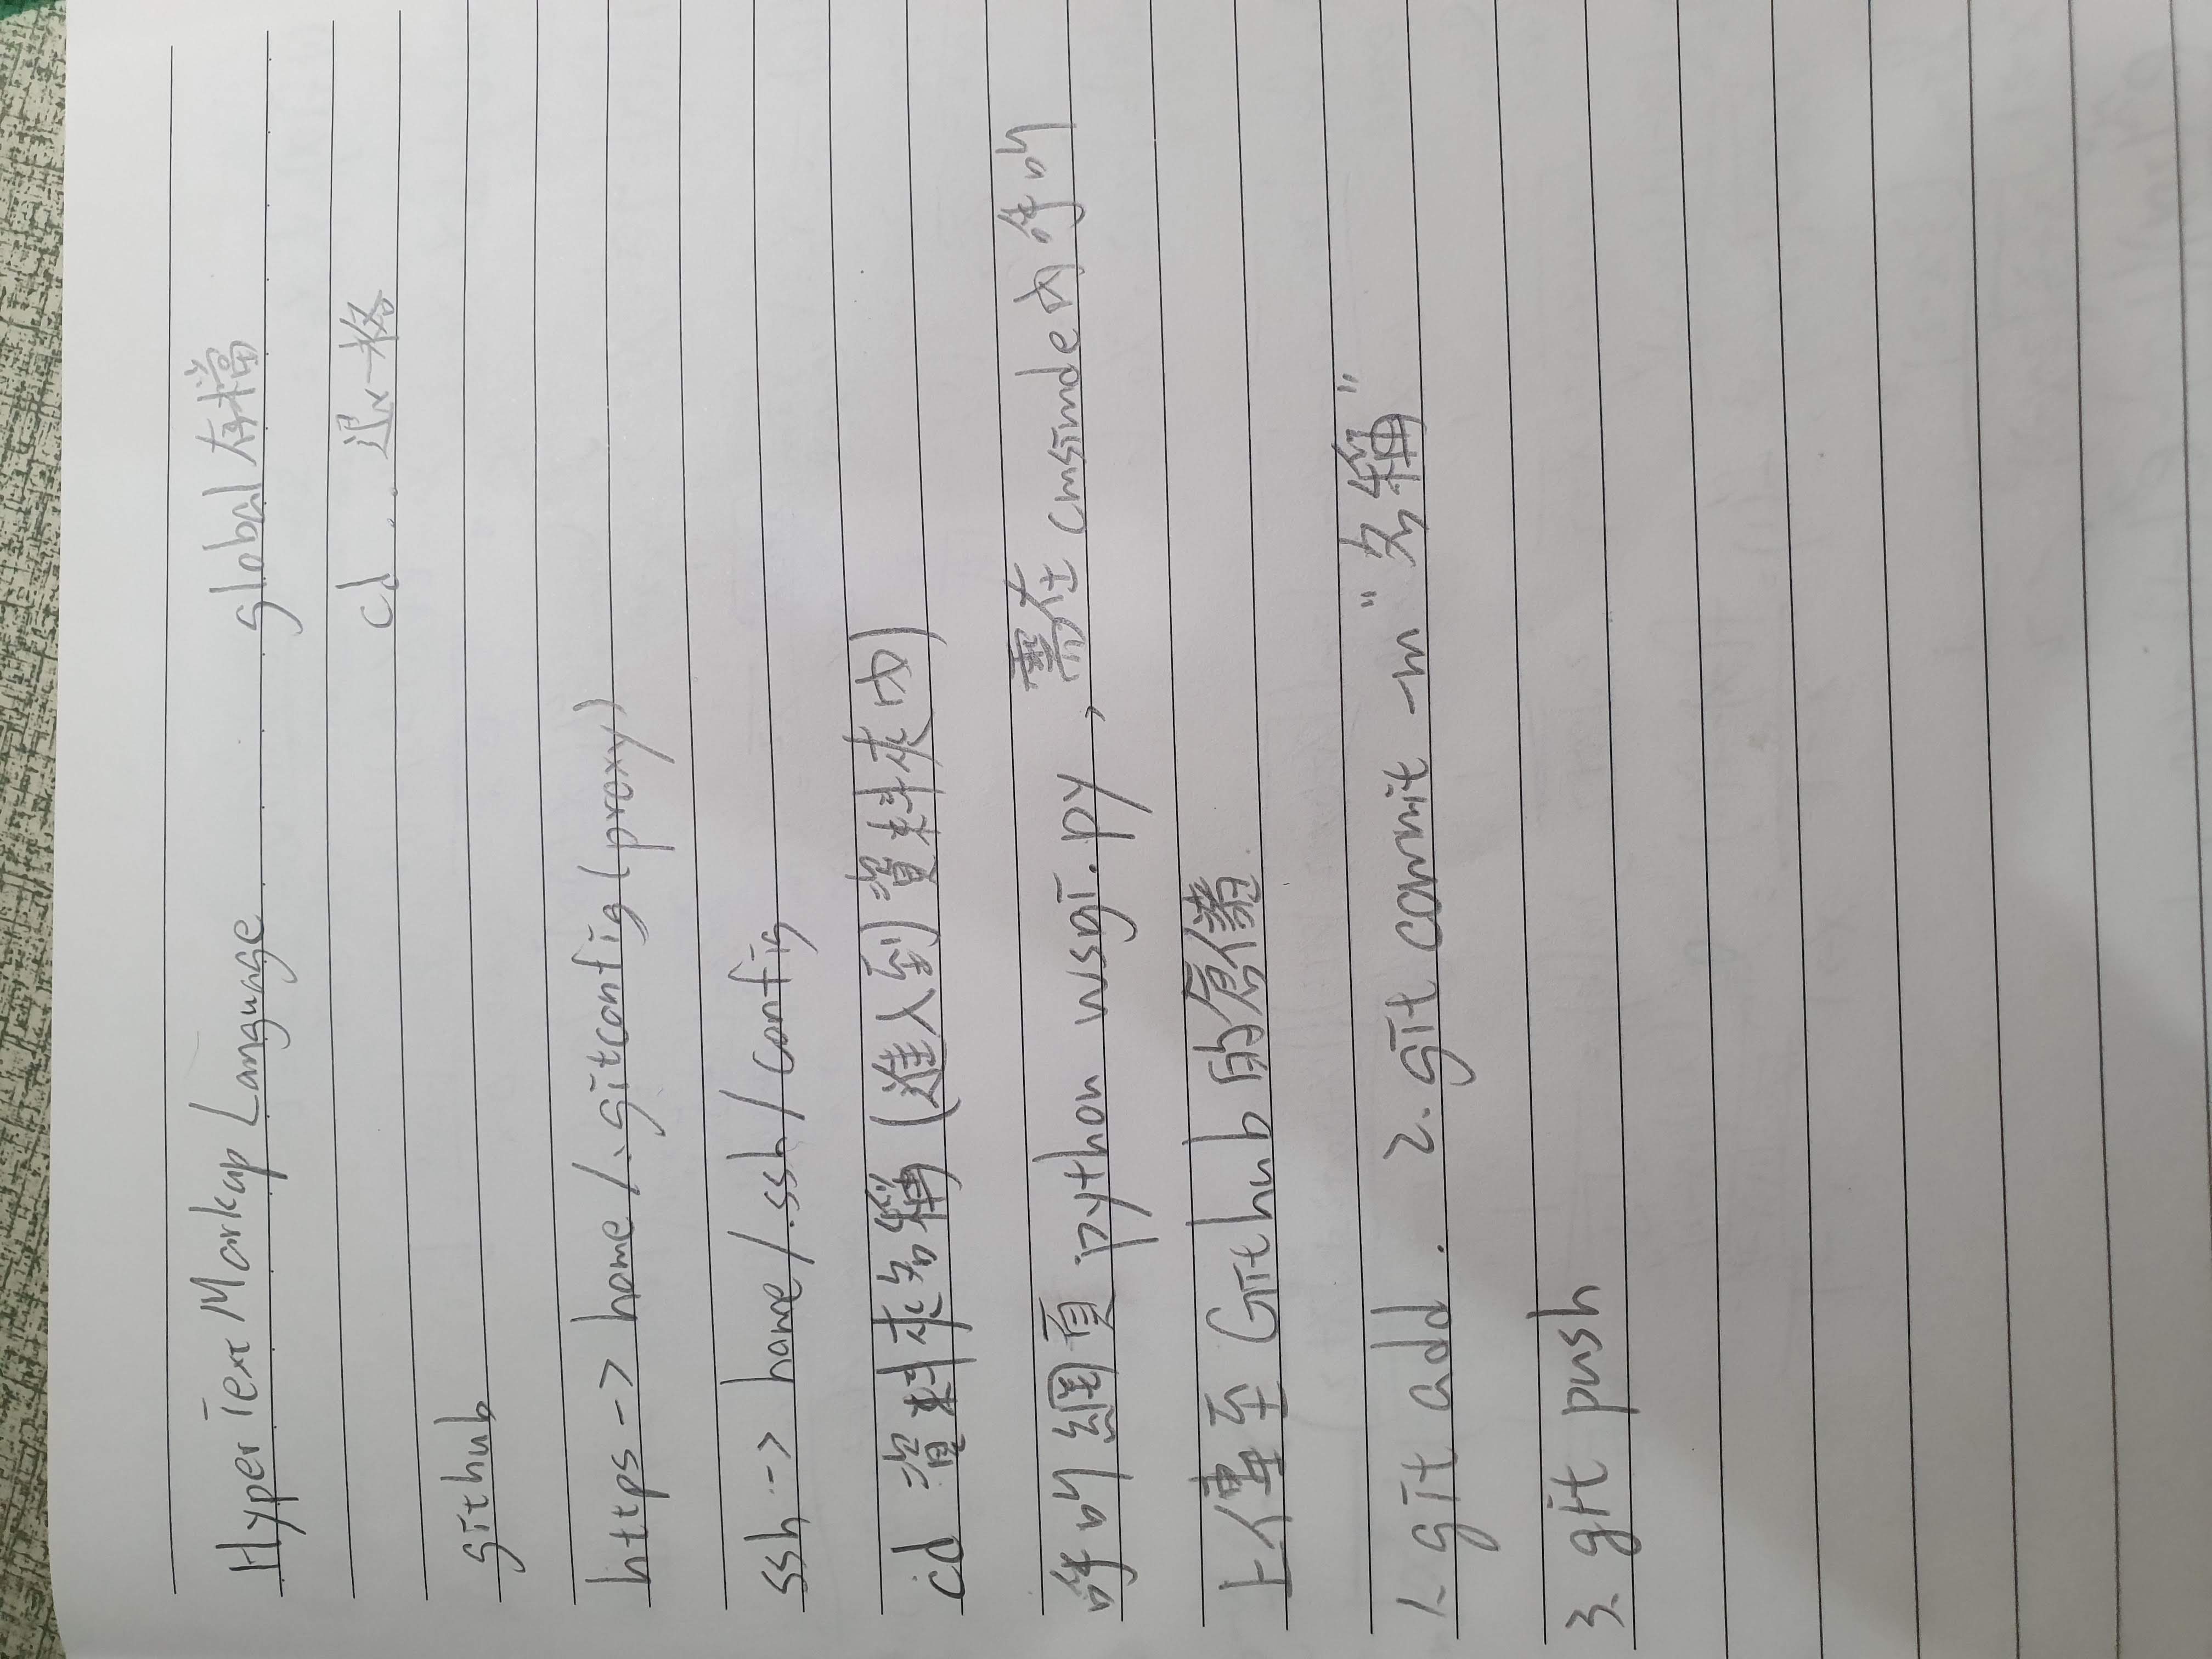 HyperText Markup Language global 存檔
cd .. 退一格
github
https -> home/.gitconfig(proxy)
ssh -> home/.ssh/config
cd 資料夾名稱 (進入到資料夾內)
呼叫網頁 python wsgi.py , 需在 cmsimde 內呼叫
上傳至 Github 的倉儲
1. git add . 2. git commit -m "名稱"
3. git push